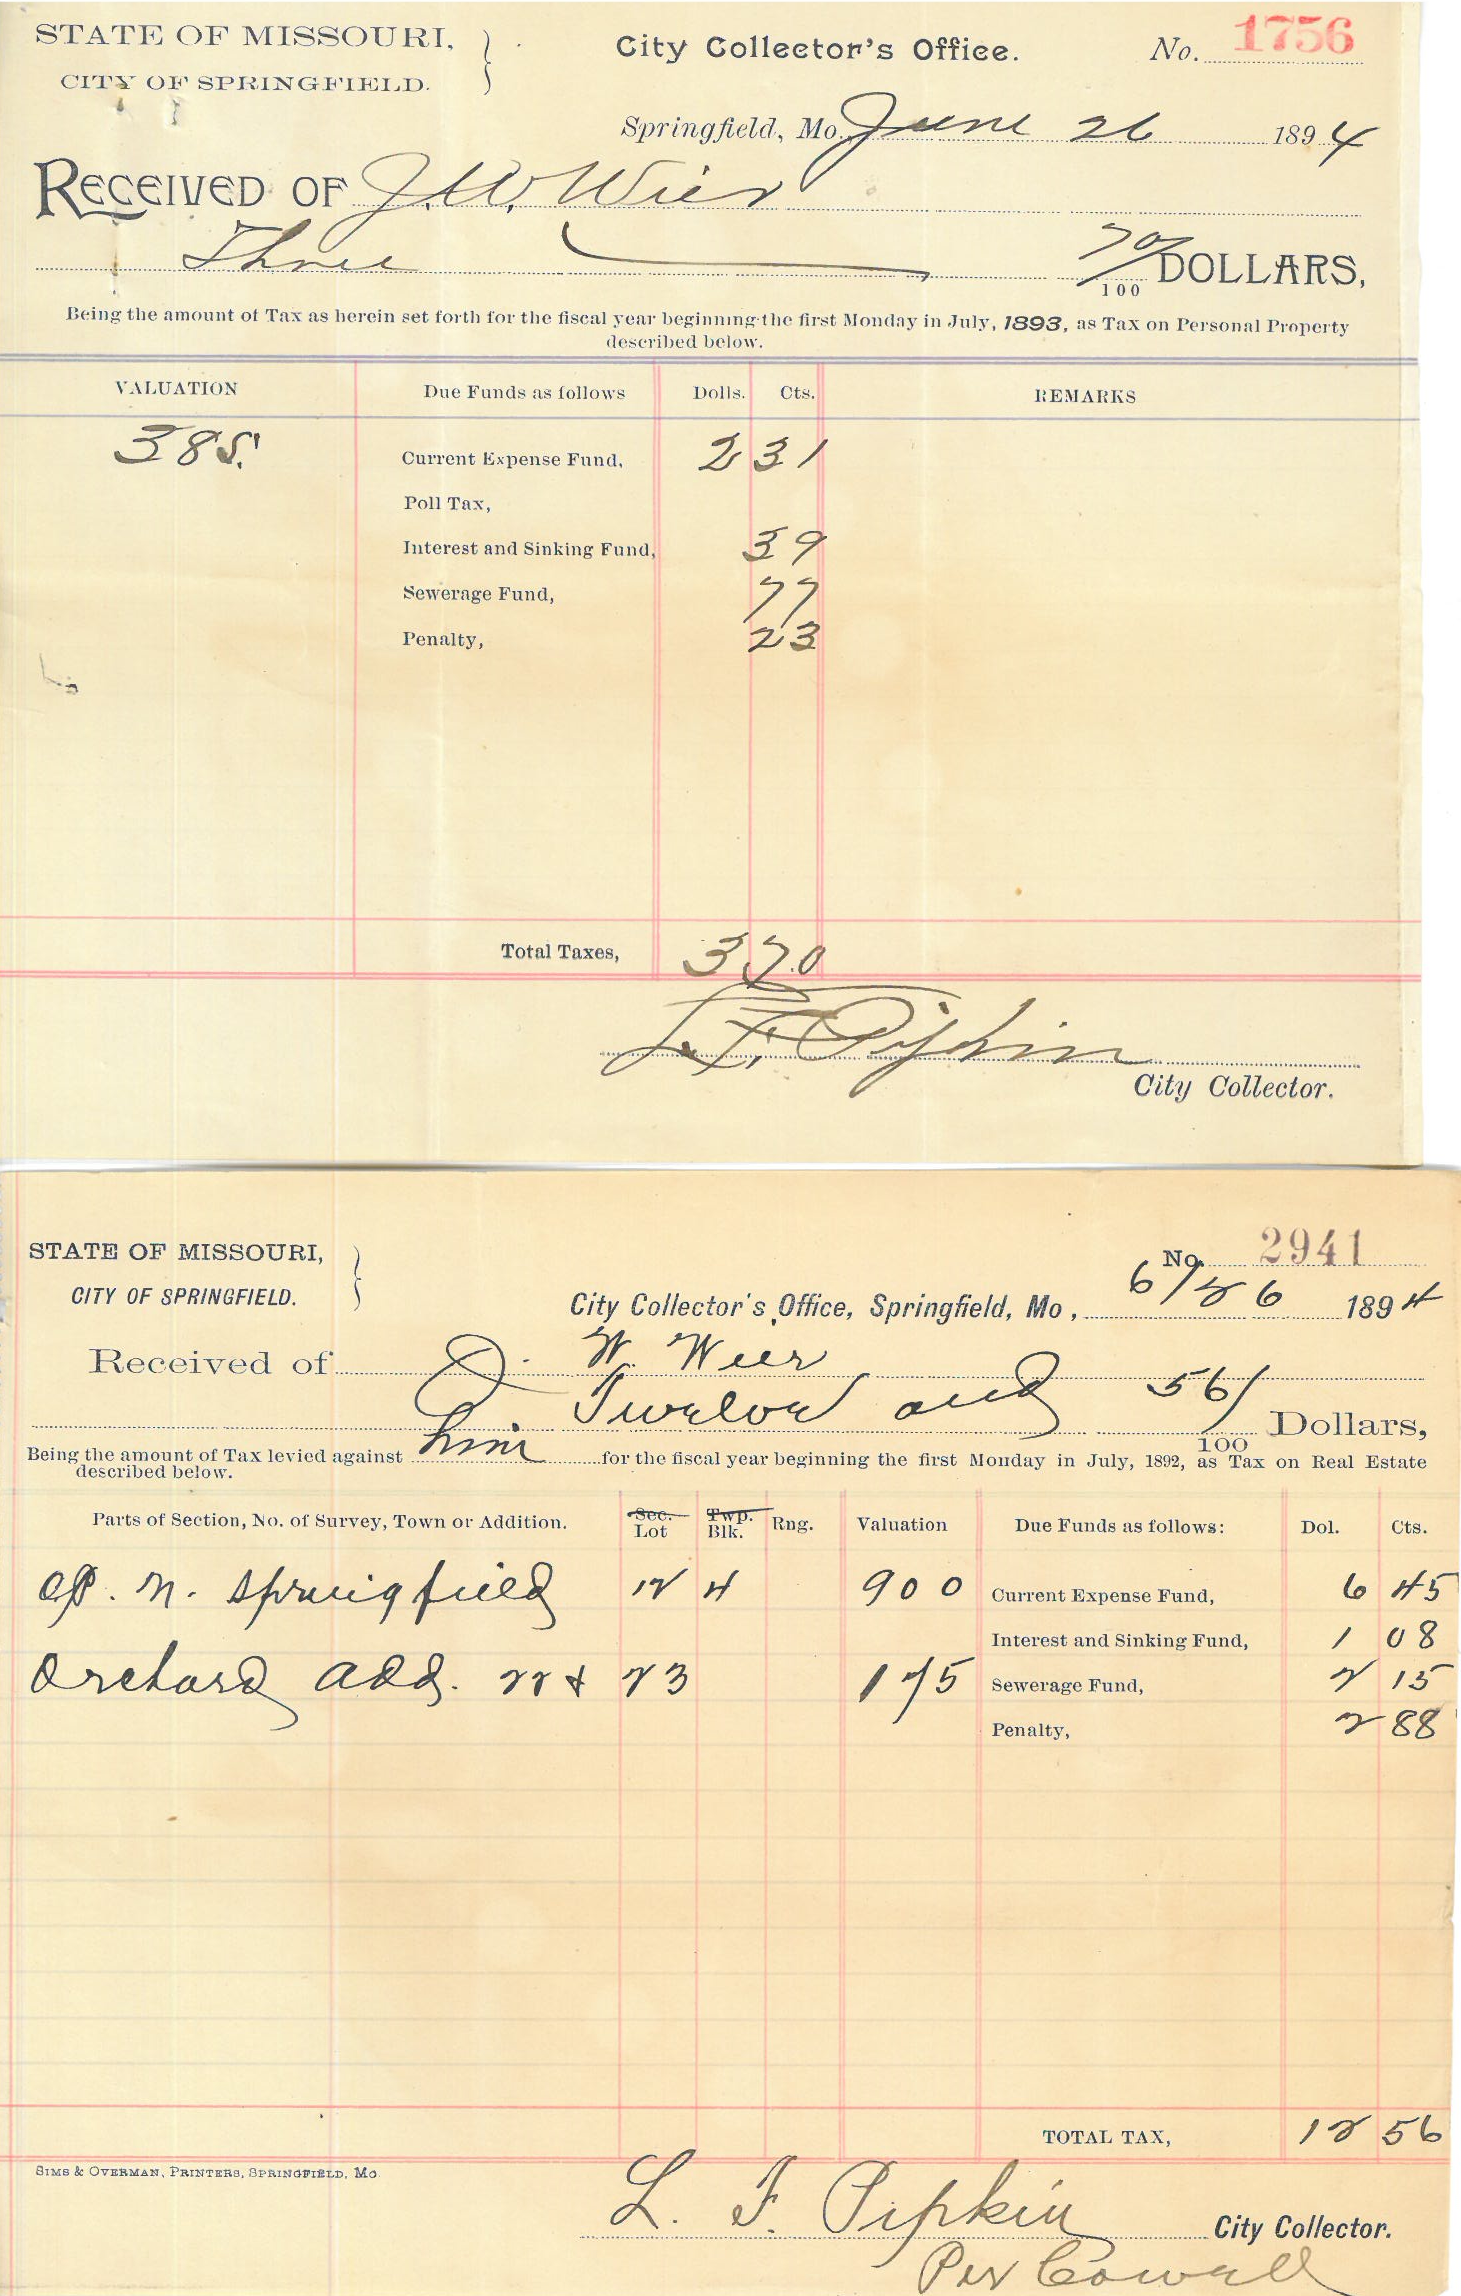 STATE OF MISSOURI,
CITY OF SPRINGFIELD.
City Collector's Office.
No. 1756
Springfield, Mo. June 26 1894
RECEIVED OF J. W. Wier
Three 70/100 DOLLARS,
Being the amount of Tax as herein set forth for the fiscal year beginning the first Monday in July, 1893, as Tax on Personal Property
described below.
VALUATION Due Funds as follows Dolls. Cts. REMARKS
385. Current Expense Fund, 2 31
Poll Tax,
Interest and Sinking Fund, 39
Sewerage Fund, 77
Penalty, 23
Total Taxes, 3 70
L. F. Pipkin
City Collector.
STATE OF MISSOURI,
CITY OF SPRINGFIELD.
No. 2941
City Collector's Office, Springfield, Mo., 6/26 1894
Received of J. W. Wier
Twelve and 56/100 Dollars,
Being the amount of Tax levied against him for the fiscal year beginning the first Monday in July, 1892, as Tax on Real Estate
described below.
Parts of Section, No. of Survey, Town or Addition. Sec. Lot Twp. Blk. Rng. Valuation Due Funds as follows: Dol. Cts.
N. Springfield 12 4 900 Current Expense Fund, 6 45
Interest and Sinking Fund, 1 08
Orchard Add. 22 & 23 175 Sewerage Fund, 2 15
Penalty, 2 88
TOTAL TAX, 12 56
SIMS & OVERMAN, PRINTERS, SPRINGFIELD, MO.
L. F. Pipkin City Collector.
Per Cowell